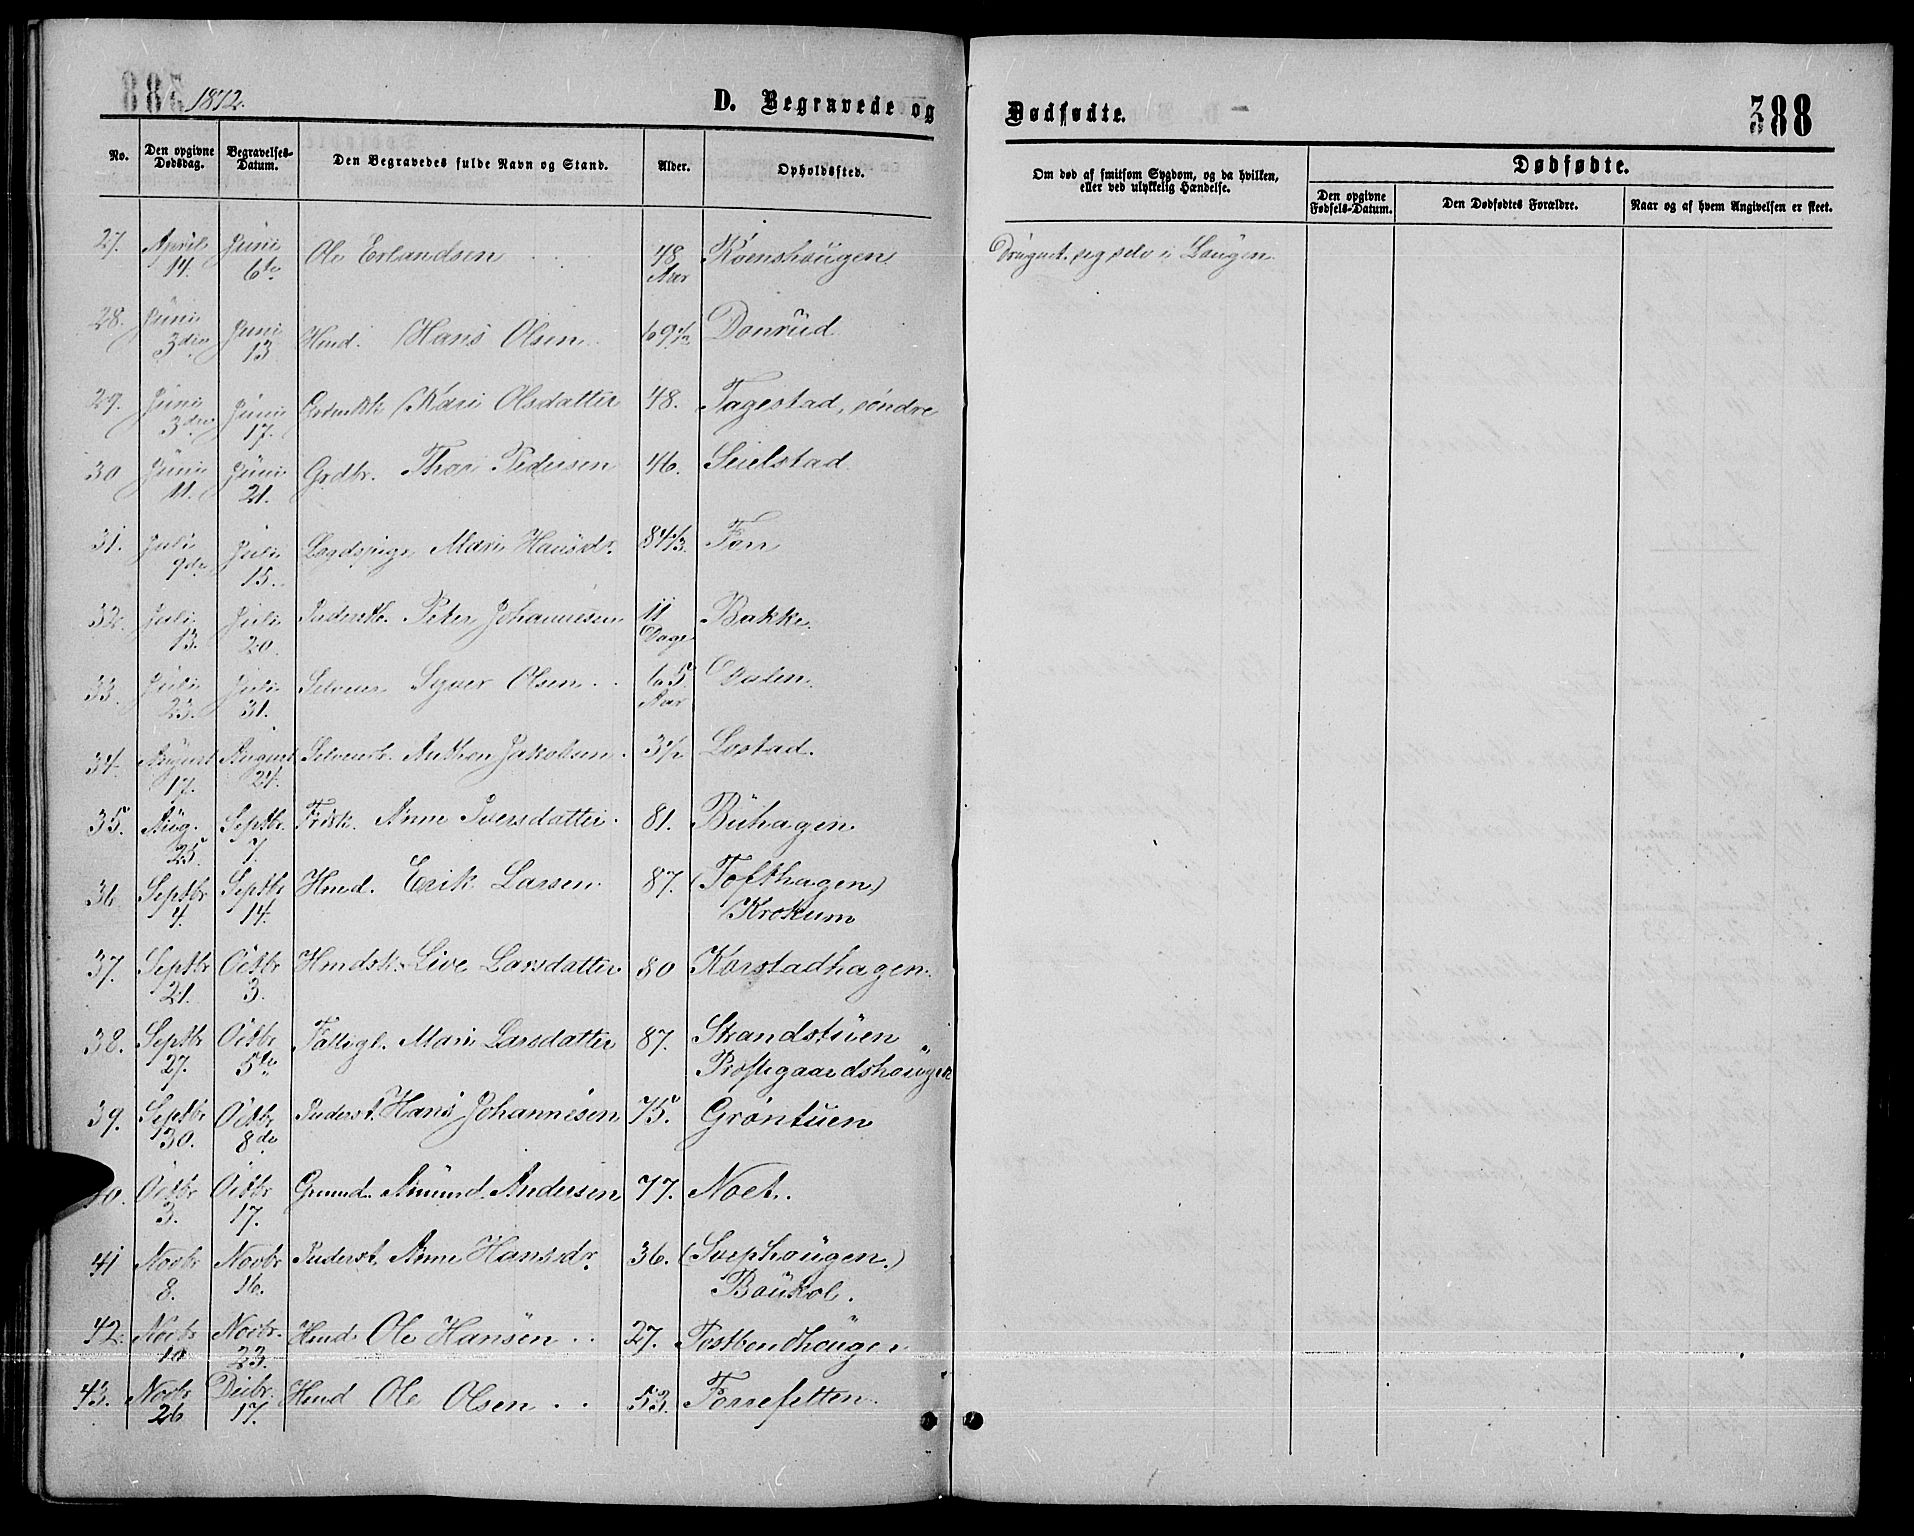 1872.
D. Begravede og Dødfødte.
388
No. Den opgivne Dødsdag. Begravelses-Datum. Den Begravedes fulde Navn og Stand. Alder. Opholdssted. Om død af smitsom Sygdom, og da hvilken, eller ved ulykkelig Hændelse. Dødfødte.
Den opgivne Fødsels-Datum. Den Dødfødtes Forældre. Naar og af hvem Angivelsen er skeet.
27. April 14. Juni 6te Ole Erlandsen 48 Aar Koenshougen Drugnet seg selv i Lougen.
28. Juni 3den Juni 13 Hmd. Hans Olsen 69 1/2 Donrud
29. Juni 3den Juni 17. Kari Olsdatter 48. Fagestad, søndre
30 Juni 11. Juni 21. Grdbr. Thor Pedersen 46. Seielstad
31. Juli 9de Juli 15. Lægdspige Mari Hansdr. 84 1/3. Fon
32. Juli 13. Juli 20. Inderstb. Peter Johannesen 11 Dage Bakke.
33. Juli 23. Juli 31. Selveier Syver Olsen 65 Aar Dalen.
34. August 17. August 24. Selveierb. Anthon Jakobsen. 3 1/2 Lostad.
35. Aug. 25. Septbr. 7. Anne Iversdatter. 81. Buhagen
36 Septbr 4. Septbr 14. Hmd. Erik Larsen 87. (Tofthagen)
Krokum
37. Septbr 21. Octbr 3. Hmdsk. Live Larsdatter 80 Korstadhagen.
38. Septbr 27. Octbr 5te Fattigl. Mari Larsdatter 87. Strandstuen
Prostegaardshougen
39. Septbr 30. Octbr 8de Inderst. Hans Johannesen 75. Grøntuen
40. Octbr 3. Octbr 17. Gmmd. Amund Andersen 77. Noet.
41 Novbr 8. Novbr 16. Inderst. Anne Hansdr. 36. (Svephougen.)
Baukol.
42. Novbr 10 Novbr. 23. Hmd. Ole Hansen 27. Tostbendhougen
43. Novbr 26 Decbr. 17. Hmd Ole Olsen 53. Forrefetten.